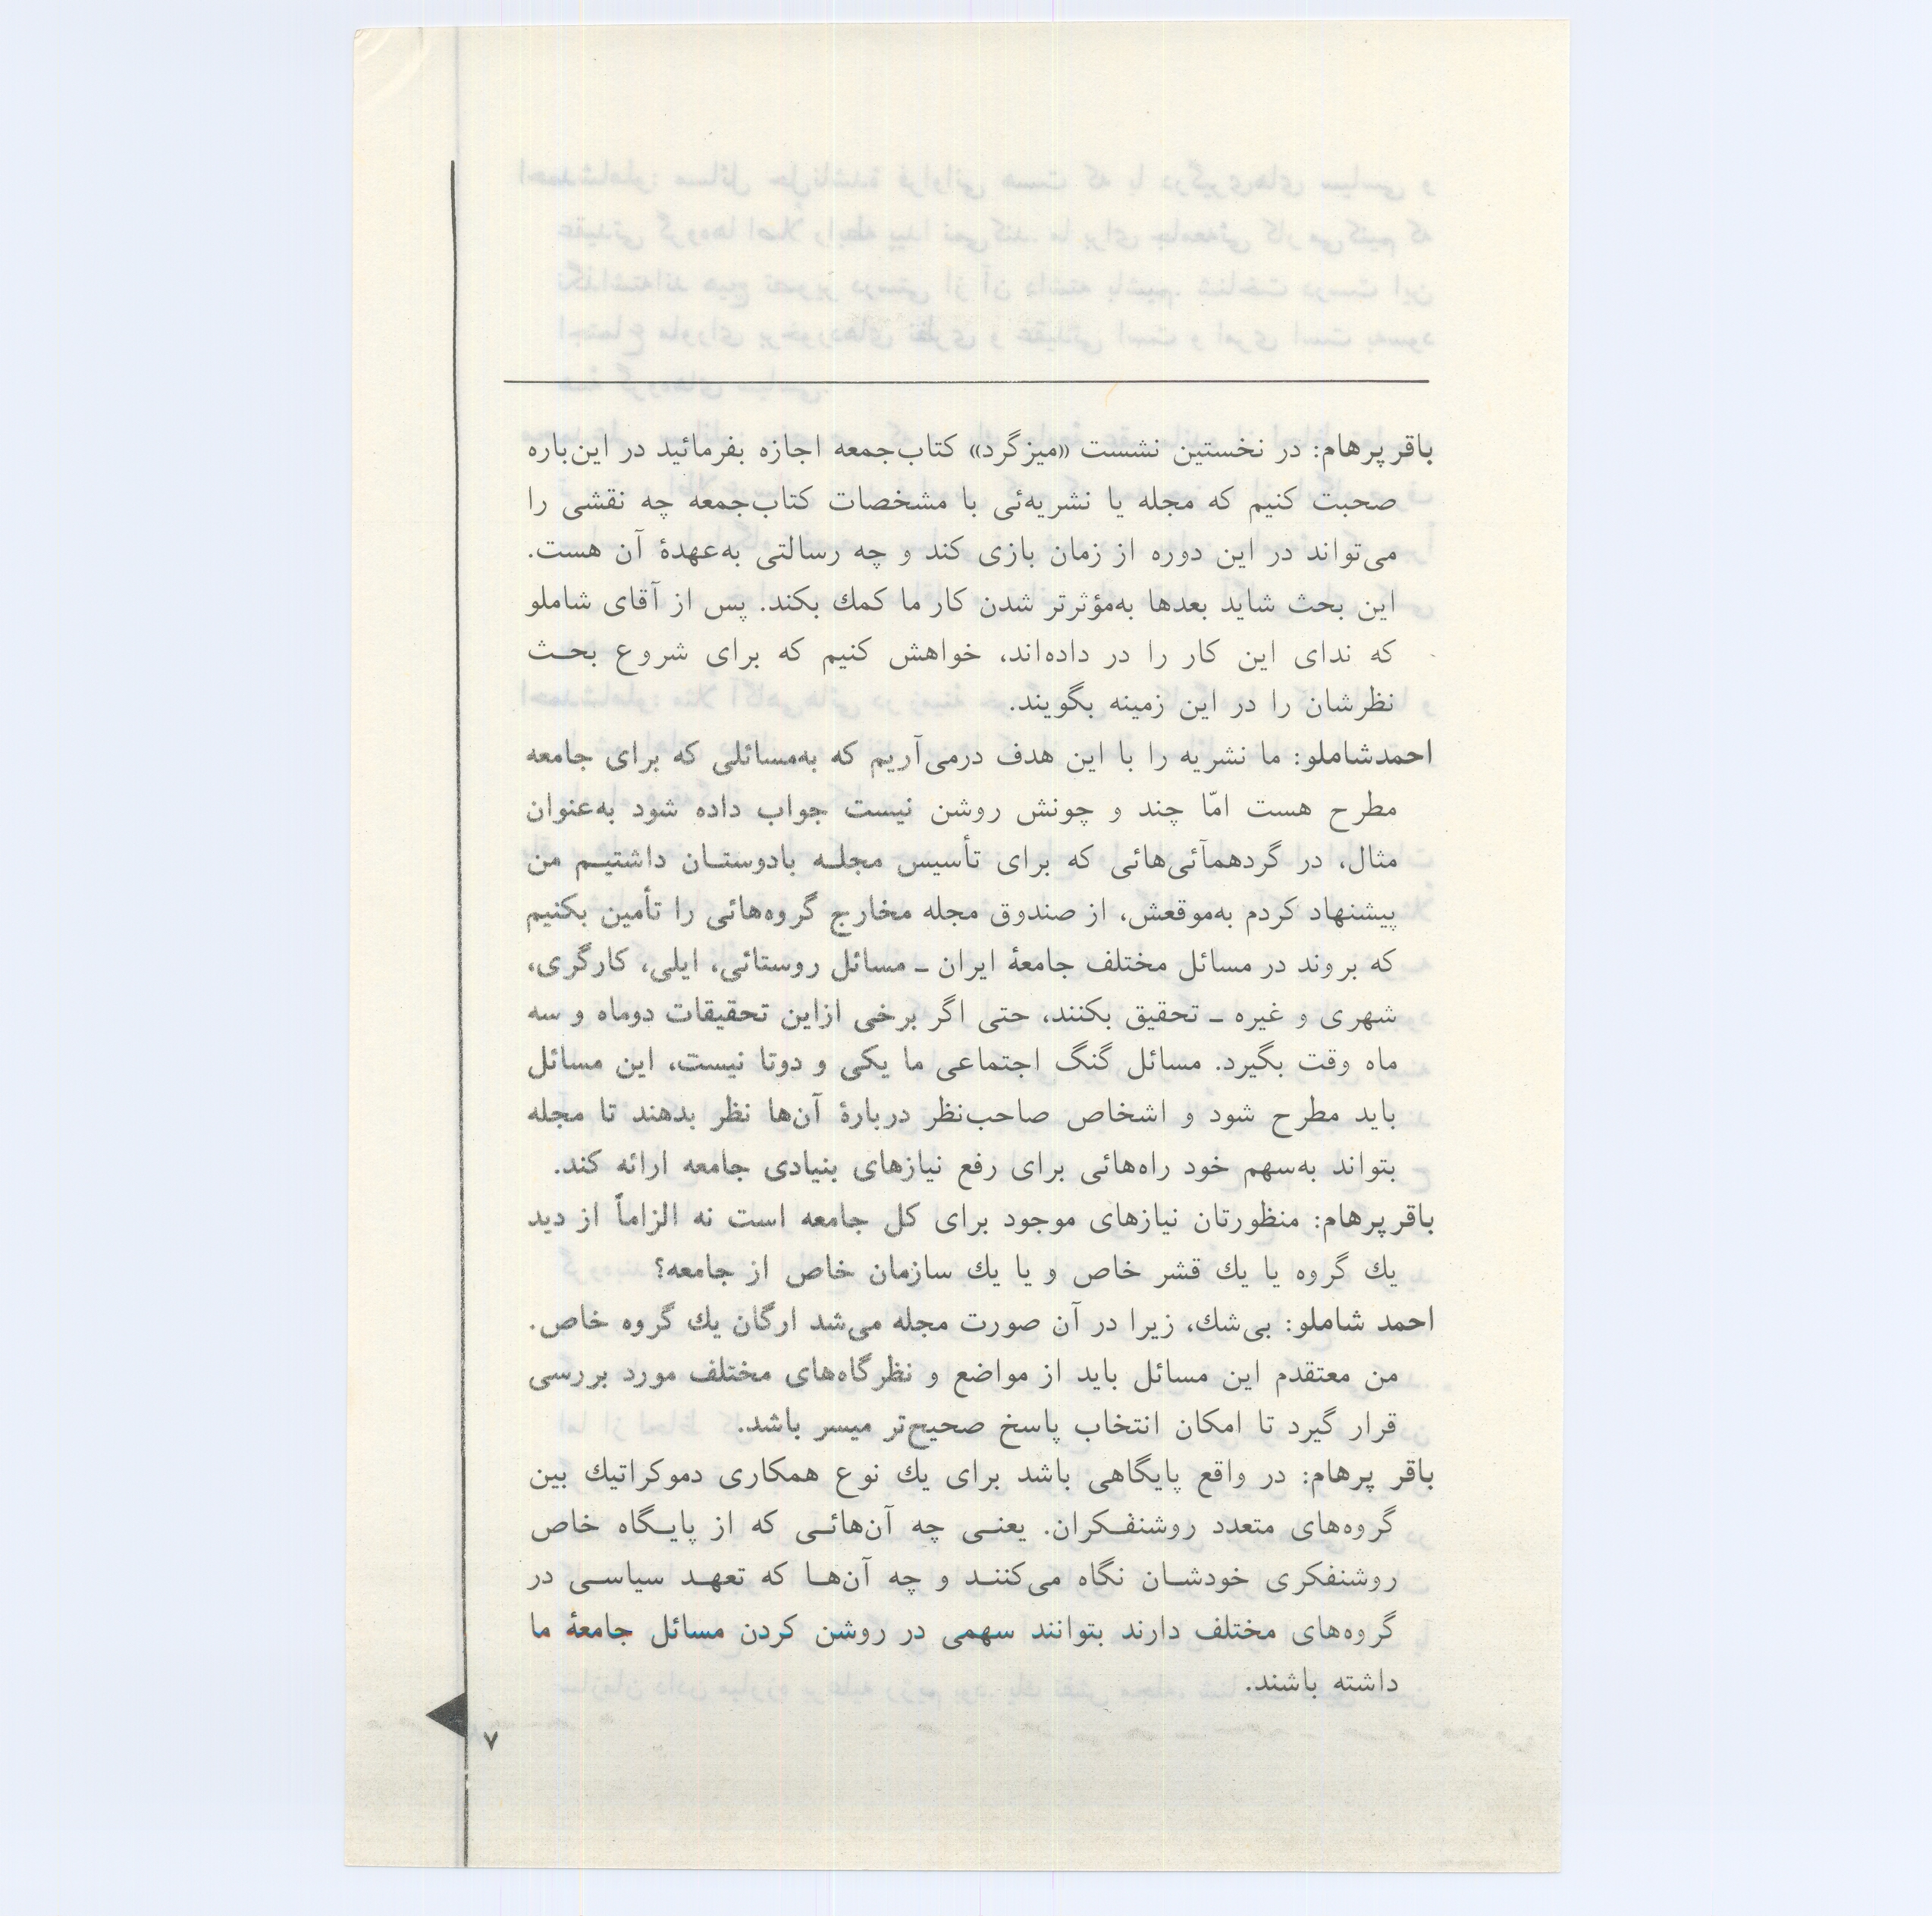 باقر پرهام: در نخستین نشست «میزگرد» کتاب‌جمعه اجازه بفرمائید در این‌باره
صحبت کنیم که مجله یا نشریه‌ئی با مشخصات کتاب‌جمعه چه نقشی را
می‌تواند در این دوره از زمان بازی کند و چه رسالتی به‌عهدهٔ آن هست.
این بحث شاید بعدها به‌مؤثرتر شدن کار ما کمك بکند. پس از آقای شاملو
که ندای این کار را در داده‌اند، خواهش کنیم که برای شروع بحـث
نظرشان را در این زمینه بگویند.
احمدشاملو: ما نشریه را با این هدف درمی‌آریم که به‌مسائلی که برای جامعه
مطرح هست امّا چند و چونش روشن نیست جواب داده شود به‌عنوان
مثال، در گردهمآئی‌هائی که برای تأسیس مجلـه بادوستـان داشتیـم من
پیشنهاد کردم به‌موقعش، از صندوق مجله مخارج گروه‌هائی را تأمین بکنیم
که بروند در مسائل مختلف جامعهٔ ایران ـ مسائل روستائی، ایلی، کارگری،
شهری و غیره ـ تحقیق بکنند، حتی اگر برخی ازاین تحقیقات دوماه و سه
ماه وقت بگیرد. مسائل گنگ اجتماعی ما یکی و دوتا نیست، این مسائل
باید مطرح شود و اشخاص صاحب‌نظر دربارهٔ آن‌ها نظر بدهند تا مجله
بتواند به‌سهم خود راه‌هائی برای رفع نیازهای بنیادی جامعه ارائه کند.
باقر پرهام: منظورتان نیازهای موجود برای کل جامعه است نه الزاماً از دید
یك گروه یا یك قشر خاص و یا یك سازمان خاص از جامعه؟
احمد شاملو: بی‌شك، زیرا در آن صورت مجله می‌شد ارگان یك گروه خاص.
من معتقدم این مسائل باید از مواضع و نظرگاه‌های مختلف مورد بررسی
قرار گیرد تا امکان انتخاب پاسخ صحیح‌تر میسر باشد.
باقر پرهام: در واقع پایگاهی باشد برای یك نوع همکاری دموکراتیك بین
گروه‌های متعدد روشنفـکران. یعنـی چه آن‌هائـی که از پایـگاه خاص
روشنفکری خودشـان نگاه می‌کننـد و چه آن‌هـا که تعهـد سیاسـی در
گروه‌های مختلف دارند بتوانند سهمی در روشن کردن مسائل جامعهٔ ما
داشته باشند.
۷